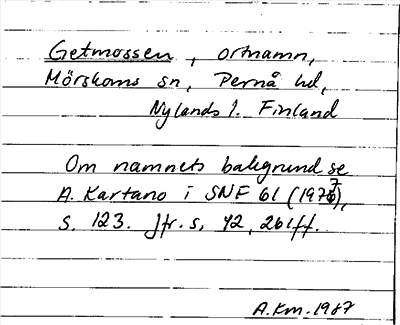 Getmossen, ortnamn,
Mörskoms sn, Pernå hd,
Nylands l. Finland
Om namnets bakgrund se
A. Kartano i SNF 61 (1977),
s. 123. Jfr. s. 42, 261ff.
A.Km.1987